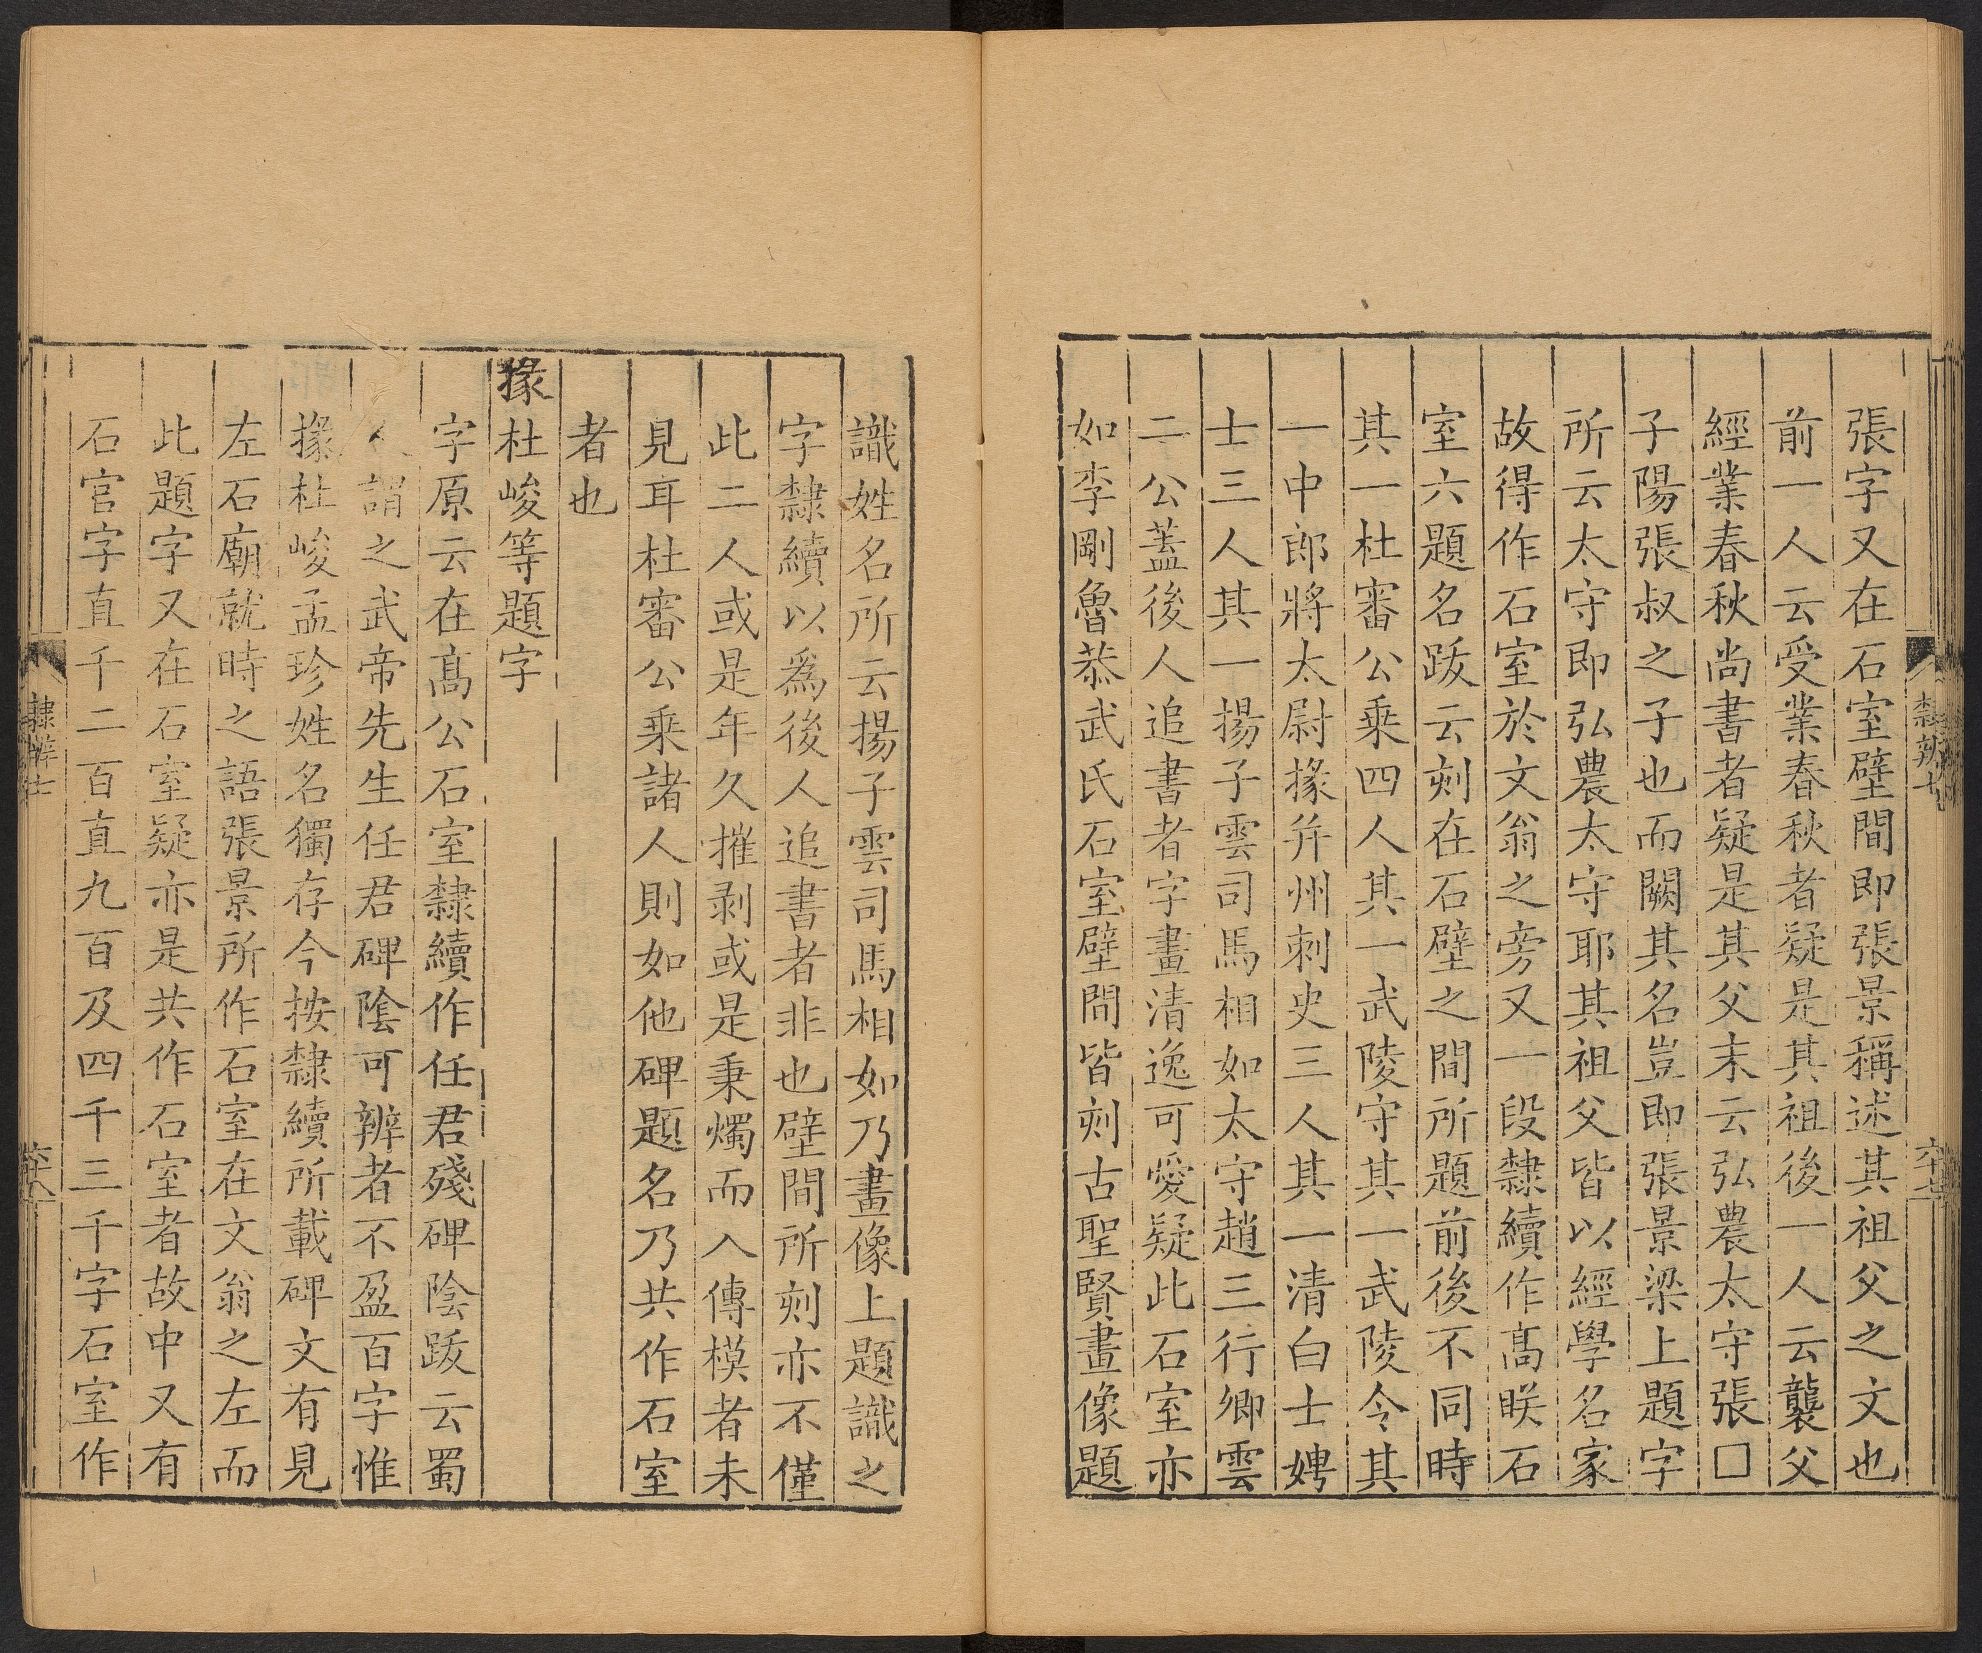 張字又在石室壁間即張景稱述其祖父之文也
前一人云受業春秋者疑是其祖後一人云襲父
經業春秋尚書者疑是其父末云弘農太守張□
子陽張叔之子也而闕其名豈即張景梁上題字
所云太守即弘農太守耶其祖父皆以經學名家
故得作石室於文翁之旁又一段隸續作髙䀢石
室六題名跋云刻在石壁之間所題前後不同時
其一杜審公乗四人其一武陵守其一武陵令其
一中郎將太尉掾并州刺史三人其一清白士娉
士三人其一揚子雲司馬相如太守趙三行卿雲
二公蓋後人追書者字畫清逸可愛疑此石室亦
如李剛魯恭武氏石室壁間皆刻古聖賢畫像題
識姓名所云揚子雲司馬相如乃畫像上題識之
字隸續以爲後人追書者非也壁間所刻亦不僅
此二人或是年久摧剥或是秉燭而入傳模者未
見耳杜審公乗諸人則如他碑題名乃共作石室
者也
掾杜峻等題字
字原云在髙公石室隸續作任君殘碑陰跋云蜀
人謂之武帝先生任君碑陰可辨者不盈百字惟
掾杜峻孟珍姓名獨存今按隸續所載碑文有見
左石廟就時之語張景所作石室在文翁之左而
此題字又在石室疑亦是共作石室者故中又有
石官字直千二百直九百及四千三千字石室作